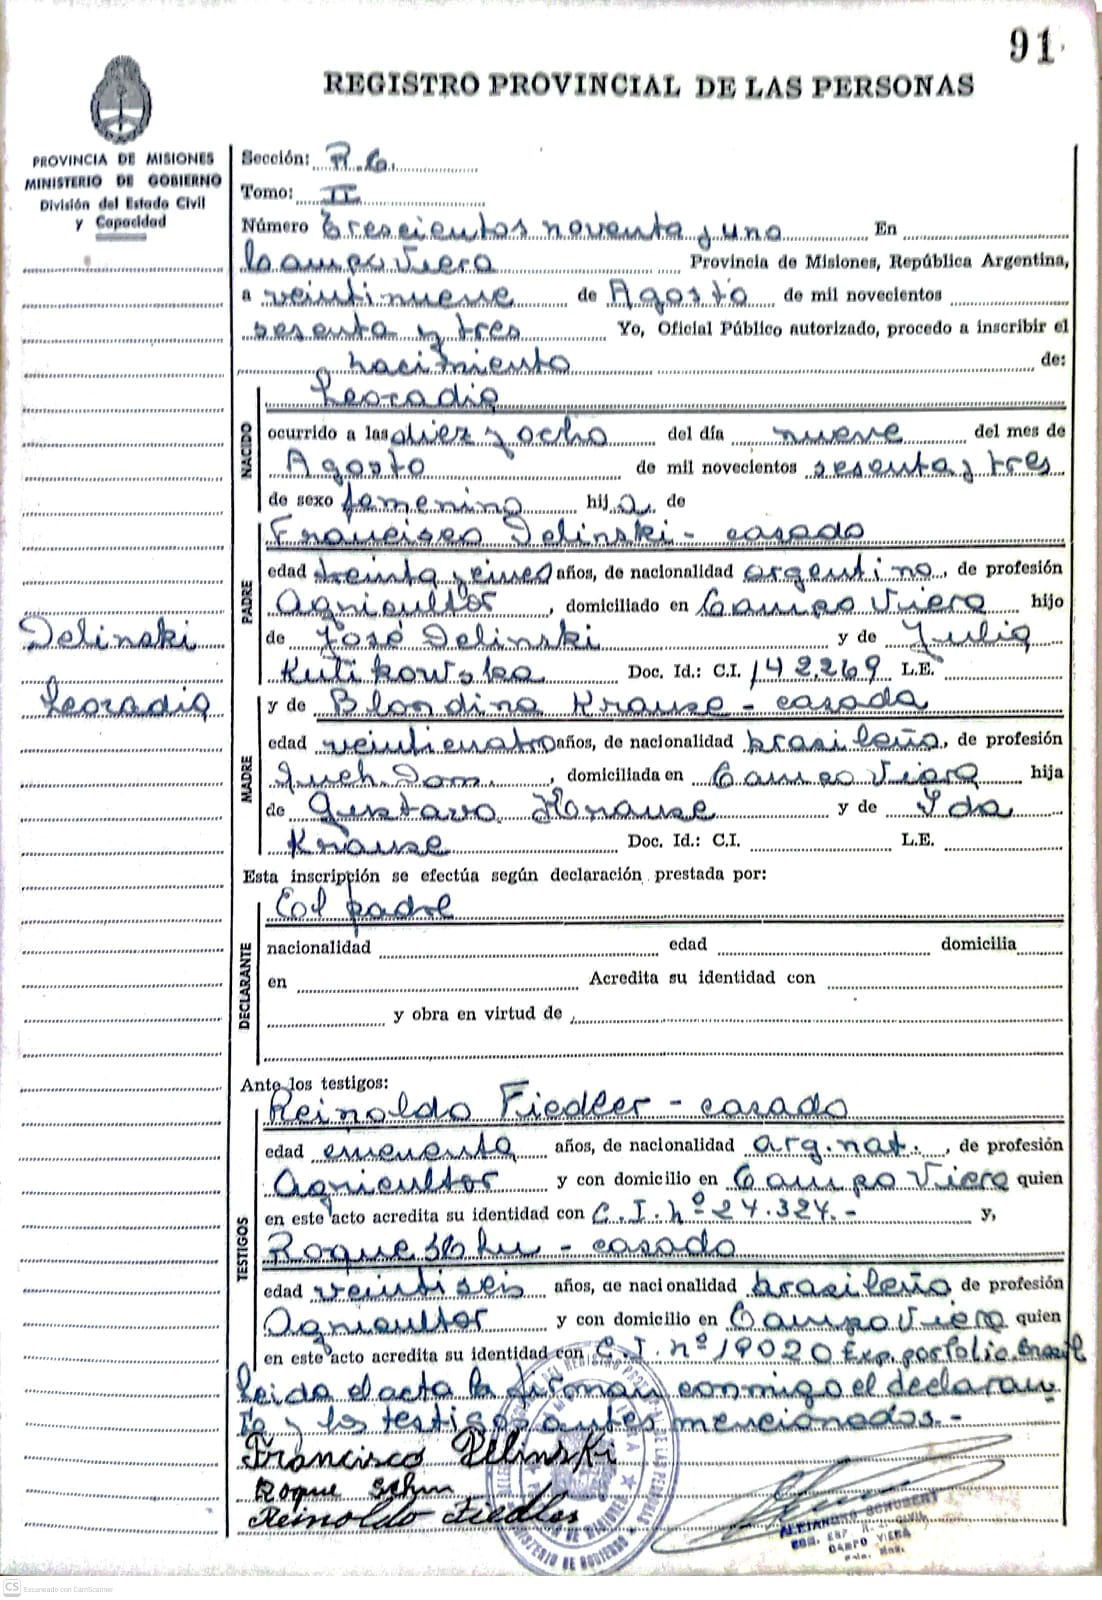 91
REGISTRO PROVINCIAL DE LAS PERSONAS
PROVINCIA DE MISIONES
MINISTERIO DE GOBIERNO
División del Estado Civil
y Capacidad
Delinski
Leocadia
Sección: R.C.
Tomo: II
Número Trescientos noventa y uno En
Campo Viera Provincia de Misiones, República Argentina,
a veintinueve de Agosto de mil novecientos
sesenta y tres Yo, Oficial Público autorizado, procedo a inscribir el
nacimiento de:
NACIDO
Leocadia
ocurrido a las diez y ocho del día nueve del mes de
Agosto de mil novecientos sesenta y tres
de sexo femenino hija de
PADRE
Francisco Delinski - casado
edad treinta y cinco años, de nacionalidad argentino, de profesión
Agricultor, domiciliado en Campo Viera hijo
de José Delinski y de Julia
Kulikowska Doc. Id.: C.I. 142.269 L.E.
MADRE
y de Blondina Krause - casada
edad veinticuatro años, de nacionalidad brasileña, de profesión
Queh. Dom., domiciliada en Campo Viera hija
de Gustavo Krause y de Ida
Krause Doc. Id.: C.I. L.E.
Esta inscripción se efectúa según declaración prestada por:
DECLARANTE
El padre
nacionalidad edad domicilia
en Acredita su identidad con
y obra en virtud de
Ante los testigos:
TESTIGOS
Reinoldo Fiedler - casado
edad cincuenta años, de nacionalidad arg. nat., de profesión
Agricultor y con domicilio en Campo Viera quien
en este acto acredita su identidad con C.I. nº 24.324.- y,
Roque - casado
edad veintiseis años, de nacionalidad brasileño de profesión
Agricultor y con domicilio en Campo Viera quien
en este acto acredita su identidad con C.I. nº 19020 Exp. por Brasil
Leida el acta la firman conmigo el declaran
te y los testigos antes mencionados.-
Francisco Delinski
Roque
Reinoldo Fiedler
ALEJANDRO SCHUBERT
CAMPO VIERA
Mns.
CS Escaneado con CamScanner